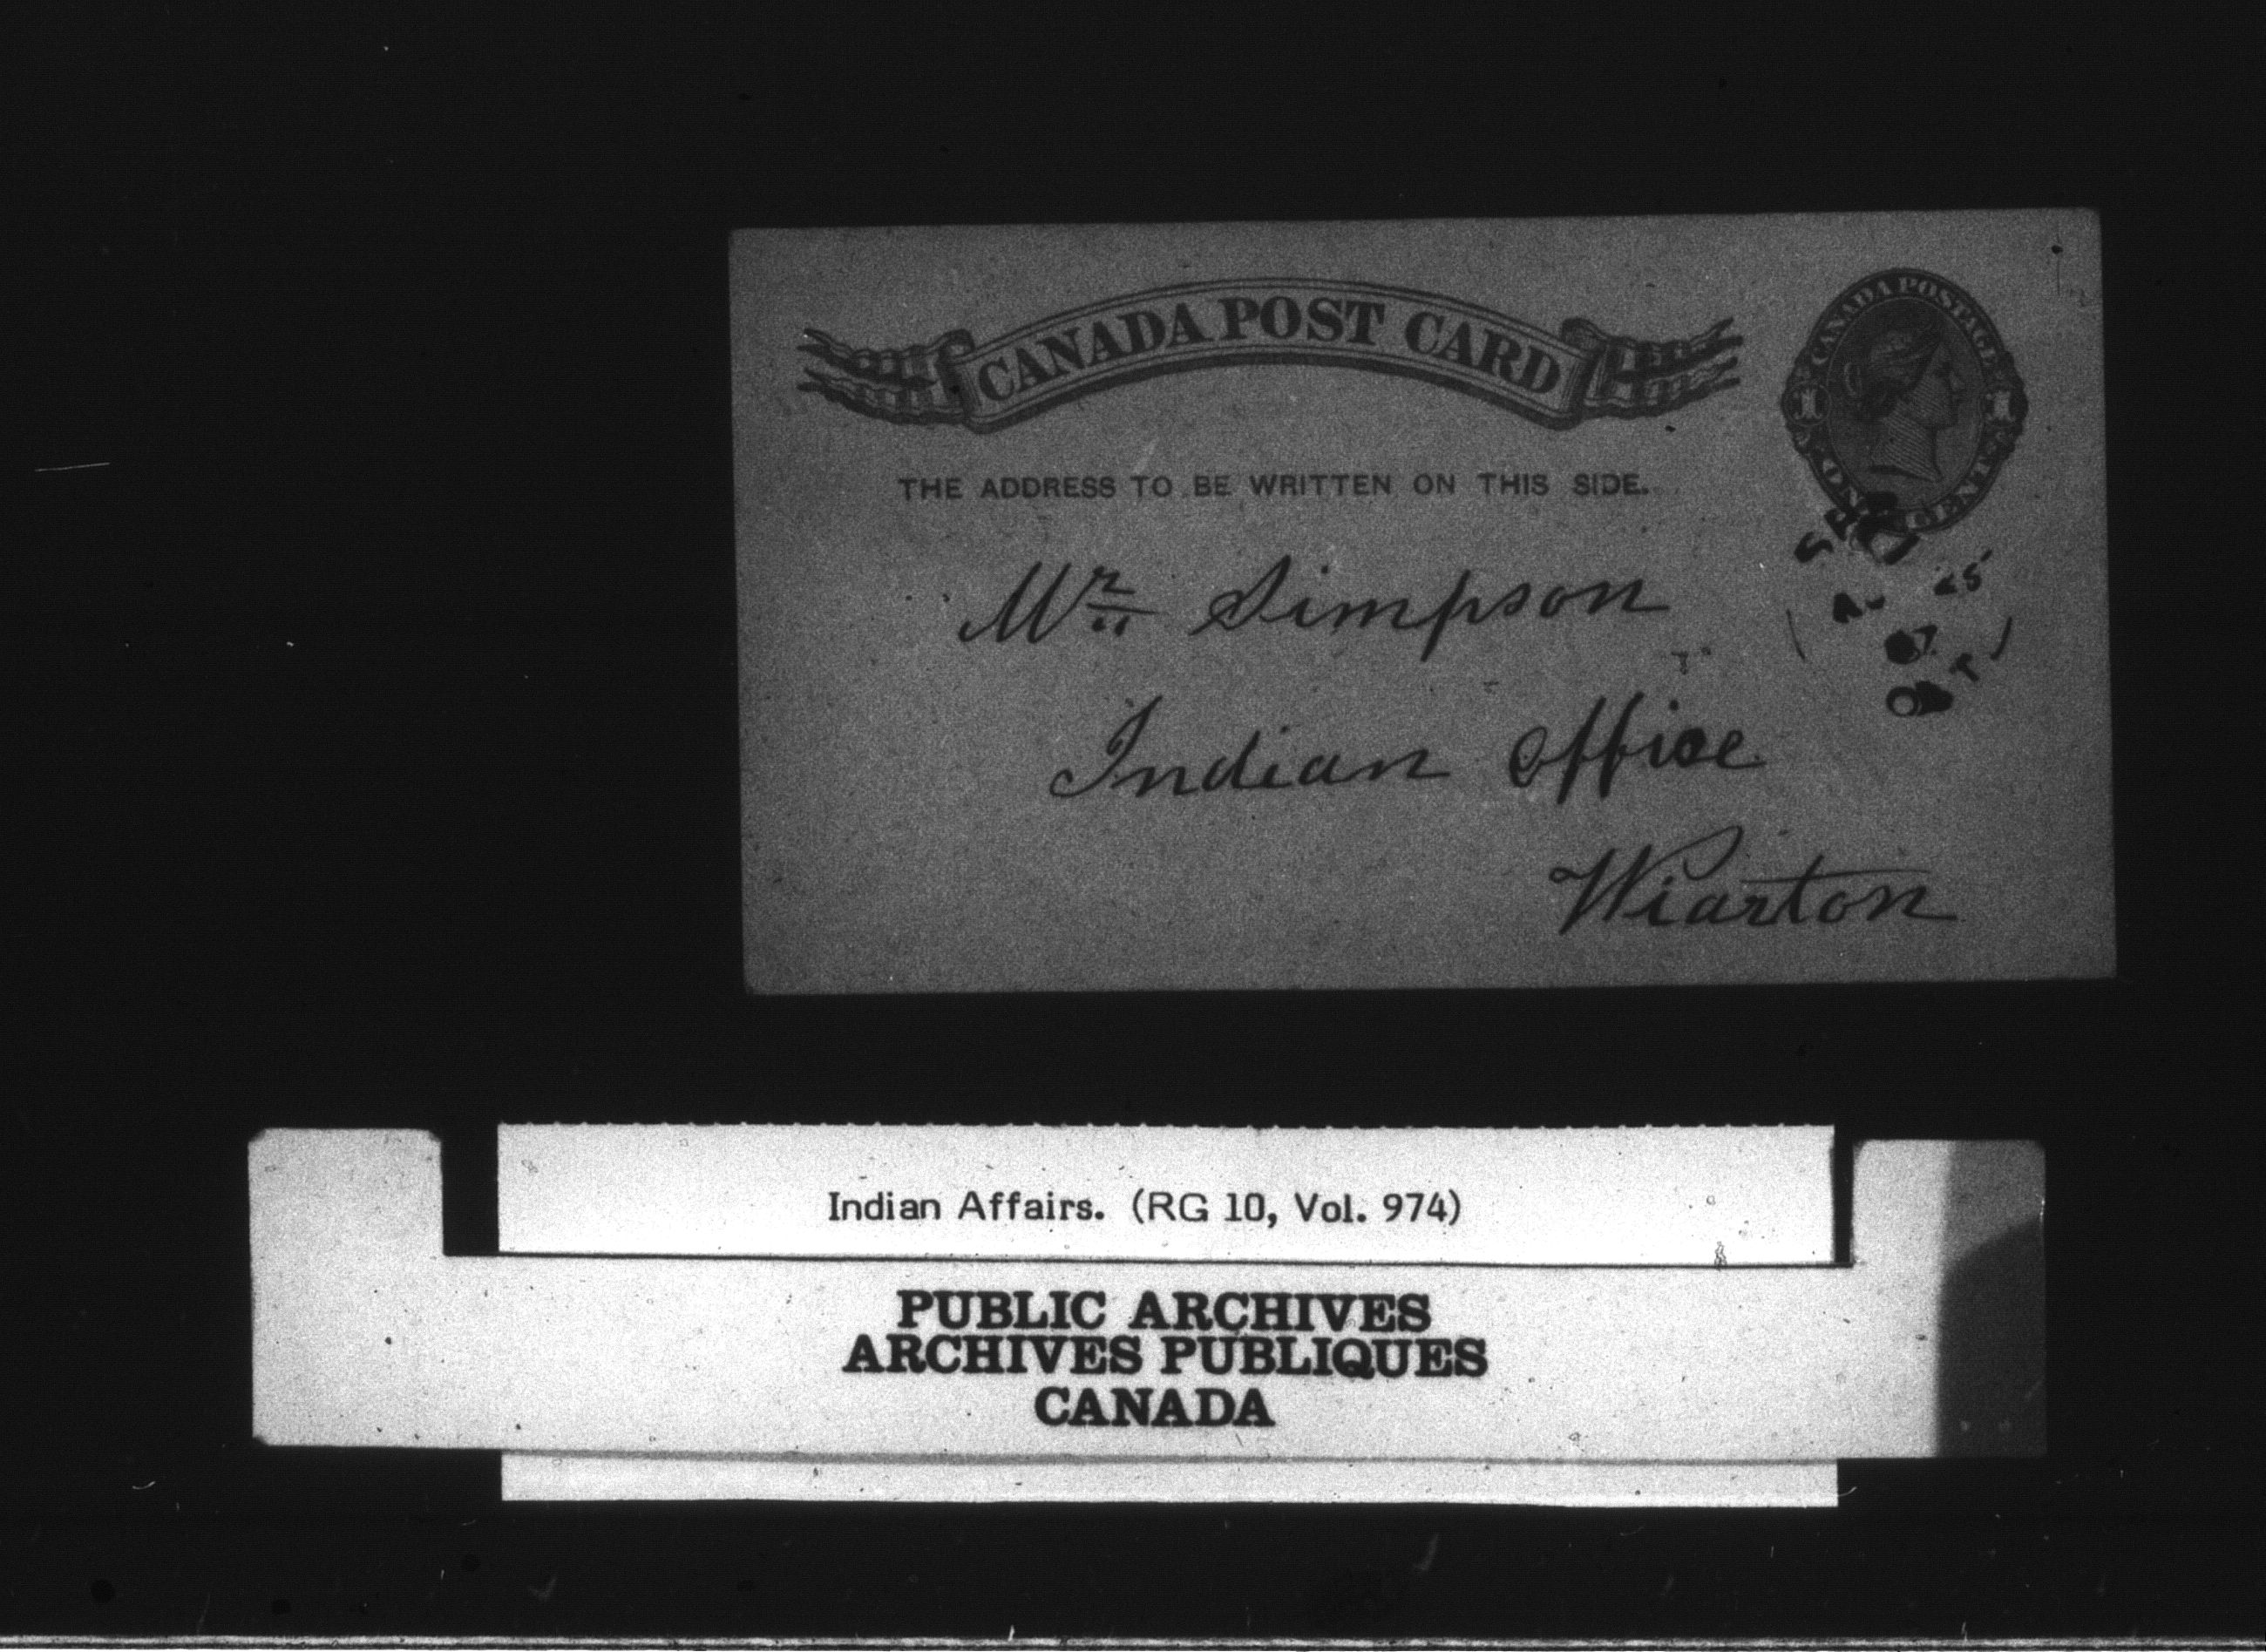 CANADA POST CARD
CANADA POSTAGE
1 1
ONE CENT
THE ADDRESS TO BE WRITTEN ON THIS SIDE.
Mr Simpson
Indian Office
Wiarton
25
ONT
Indian Affairs. (RG 10, Vol. 974)
PUBLIC ARCHIVES
ARCHIVES PUBLIQUES
CANADA